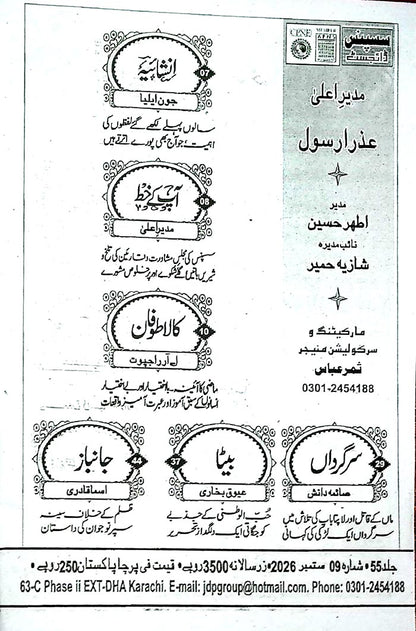 سسپنس
ڈائجسٹ
CPNE
MEMBER
APNS
مدیر اعلیٰ
عذرا رسول
مدیر
اطہر حسین
نائب مدیرہ
شازیہ حمیر
مارکیٹنگ و
سرکولیشن منیجر
ثمر عباس
0301-2454188
انشائیہ
07
جون ایلیا
سالوں پہلے لکھے گئے لفظوں کی
اہمیت؛ جو آج بھی پورے اترتے ہیں
آپ کے خط
08
مدیر اعلیٰ
سسپنس کی مجلس مشاورت، قارئین کی تلخ و
شیریں باتیں، گلے شکوے اور پر خلوص مشورے
کالا طوفان
10
اے آر راجپوت
ماضی کا آئینہ، با اختیار اور بے اختیار
انسانوں کے سبق آموز اور عبرت آمیز واقعات
سرگرداں
23
صائمہ دانش
ماں کے قاتل اور لاپتا باپ کی تلاش میں
سرگرداں ایک لڑکی کی کہانی
بیٹا
37
عیوق بخاری
حب الوطنی کے جذبے
کو جگاتی ایک دلگداز تحریر
جانباز
44
اسما قادری
ظلم کے خلاف سینہ
سپر نوجوان کی داستان
جلد 55 • شماره 09 ستمبر 2026 • زر سالانہ 3500 روپے • قیمت فی پرچا پاکستان 250 روپے •
63-C Phase ii EXT-DHA Karachi. E-mail: jdpgroup@hotmail.com. Phone: 0301-2454188